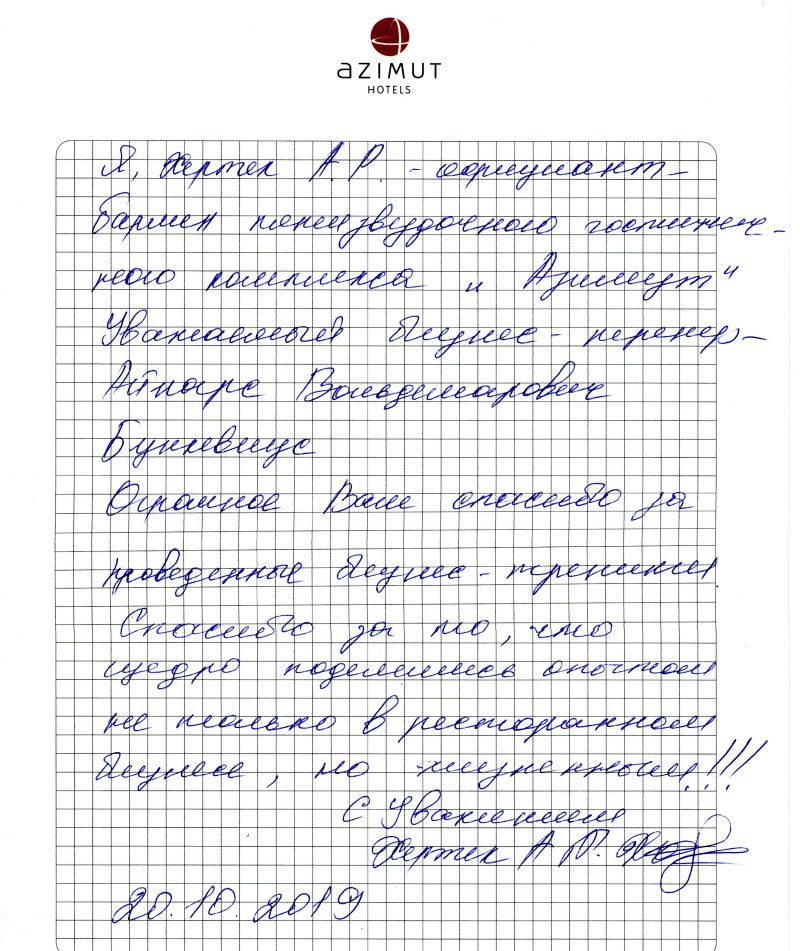 AZIMUT
HOTELS
Я, Хертек А.Р. - официант-
бармен
гостинич-
ного комплекса "Азимут"
Уважаемый бизнес-тренер-
Айнарс Вольдемарович
Огромное Вам спасибо за
проведенные бизнес-тренинги
Спасибо за то, что
щедро поделились опытом
не только в ресторанном
бизнесе, но жизненным!!!
С Уважением
Хертек А.Р.
20.10.2019